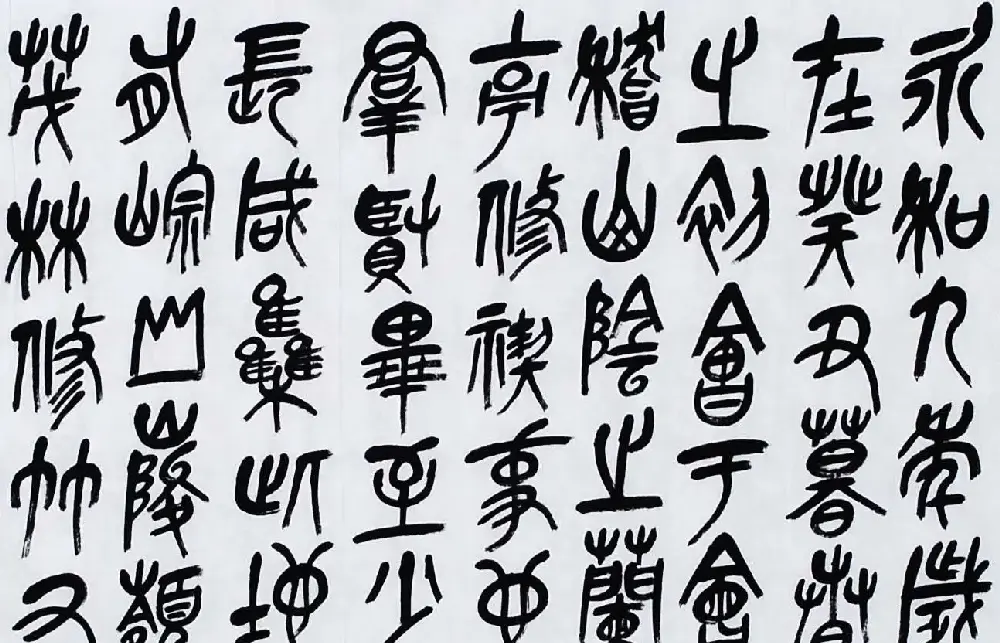 永和九年歲
在癸丑暮春
之初會于會
稽山陰之蘭
亭修禊事也
羣賢畢至少
長咸集此地
有崇山峻嶺
茂林修竹又